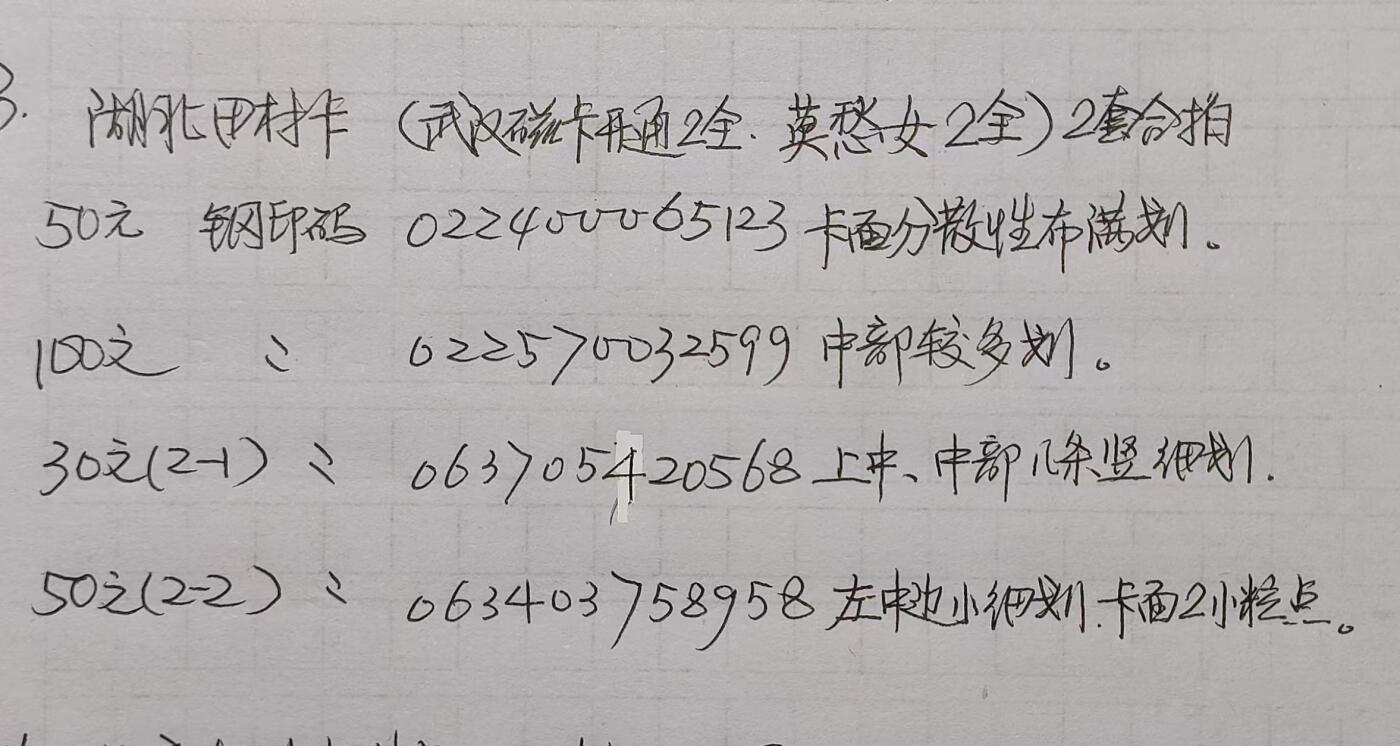 3. 湖北田村卡(武汉磁卡开通2全.莫愁女2全)2套合拍
50元 钢印码 022400065123卡面分散性布满划。
100元 〃 022570032599中部较多划。
30元(2-1)〃 063705420568上中、中部几条竖细划.
50元(2-2)〃 063403758958左中边小细划.卡面2小粒点。